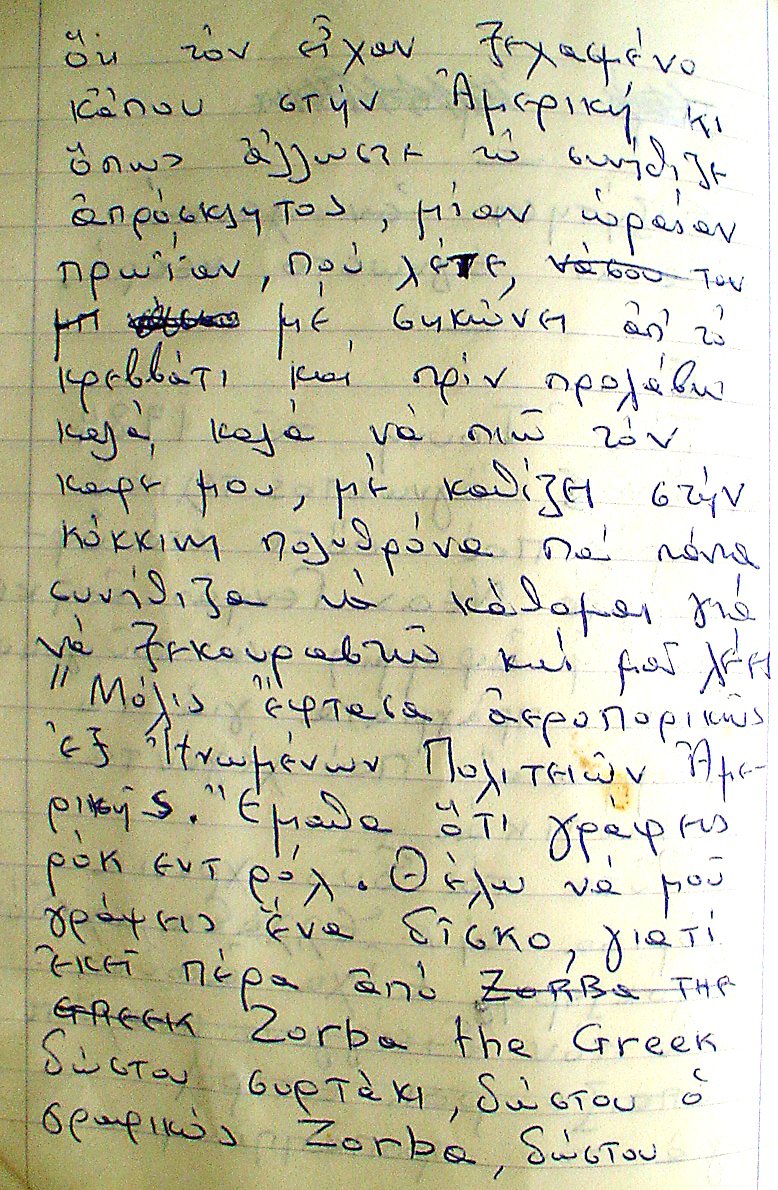 ὅτι τὸν εἶχαν ξεχασμένο
κάπου στὴν Ἀμερικὴ κι
ὅπως ἄλλωστε τὸ συνήθιζε
ἀπρόσκλητος, μίαν ὡραίαν
πρωΐαν, ποὺ λέτε, νάσου τον
μὲ σηκώνει ἀπ' τὸ
κρεββάτι καὶ πρὶν προλάβω
καλά, καλὰ νὰ πιῶ τὸν
καφέ μου, μὲ καθίζει στὴν
κόκκινη πολυθρόνα ποὺ πάντα
συνήθιζα νὰ κάθομαι γιὰ
νὰ ξεκουραστῶ καὶ μοῦ λέει
"Μόλις ἔφτασα ἀεροπορικῶς
ἐξ Ἡνωμένων Πολιτειῶν Ἀμε-
ρικῆς. Ἔμαθα ὅτι γράφεις
ρὸκ εντ ρόλ. Θέλω νὰ μοῦ
γράψεις ἕνα δίσκο, γιατὶ
ἐκεῖ πέρα ἀπὸ ZORBA THE
GREEK Zorba the Greek
δώστου συρτάκι, δώστου ὁ
γραφικὸς Zorba, δώστου